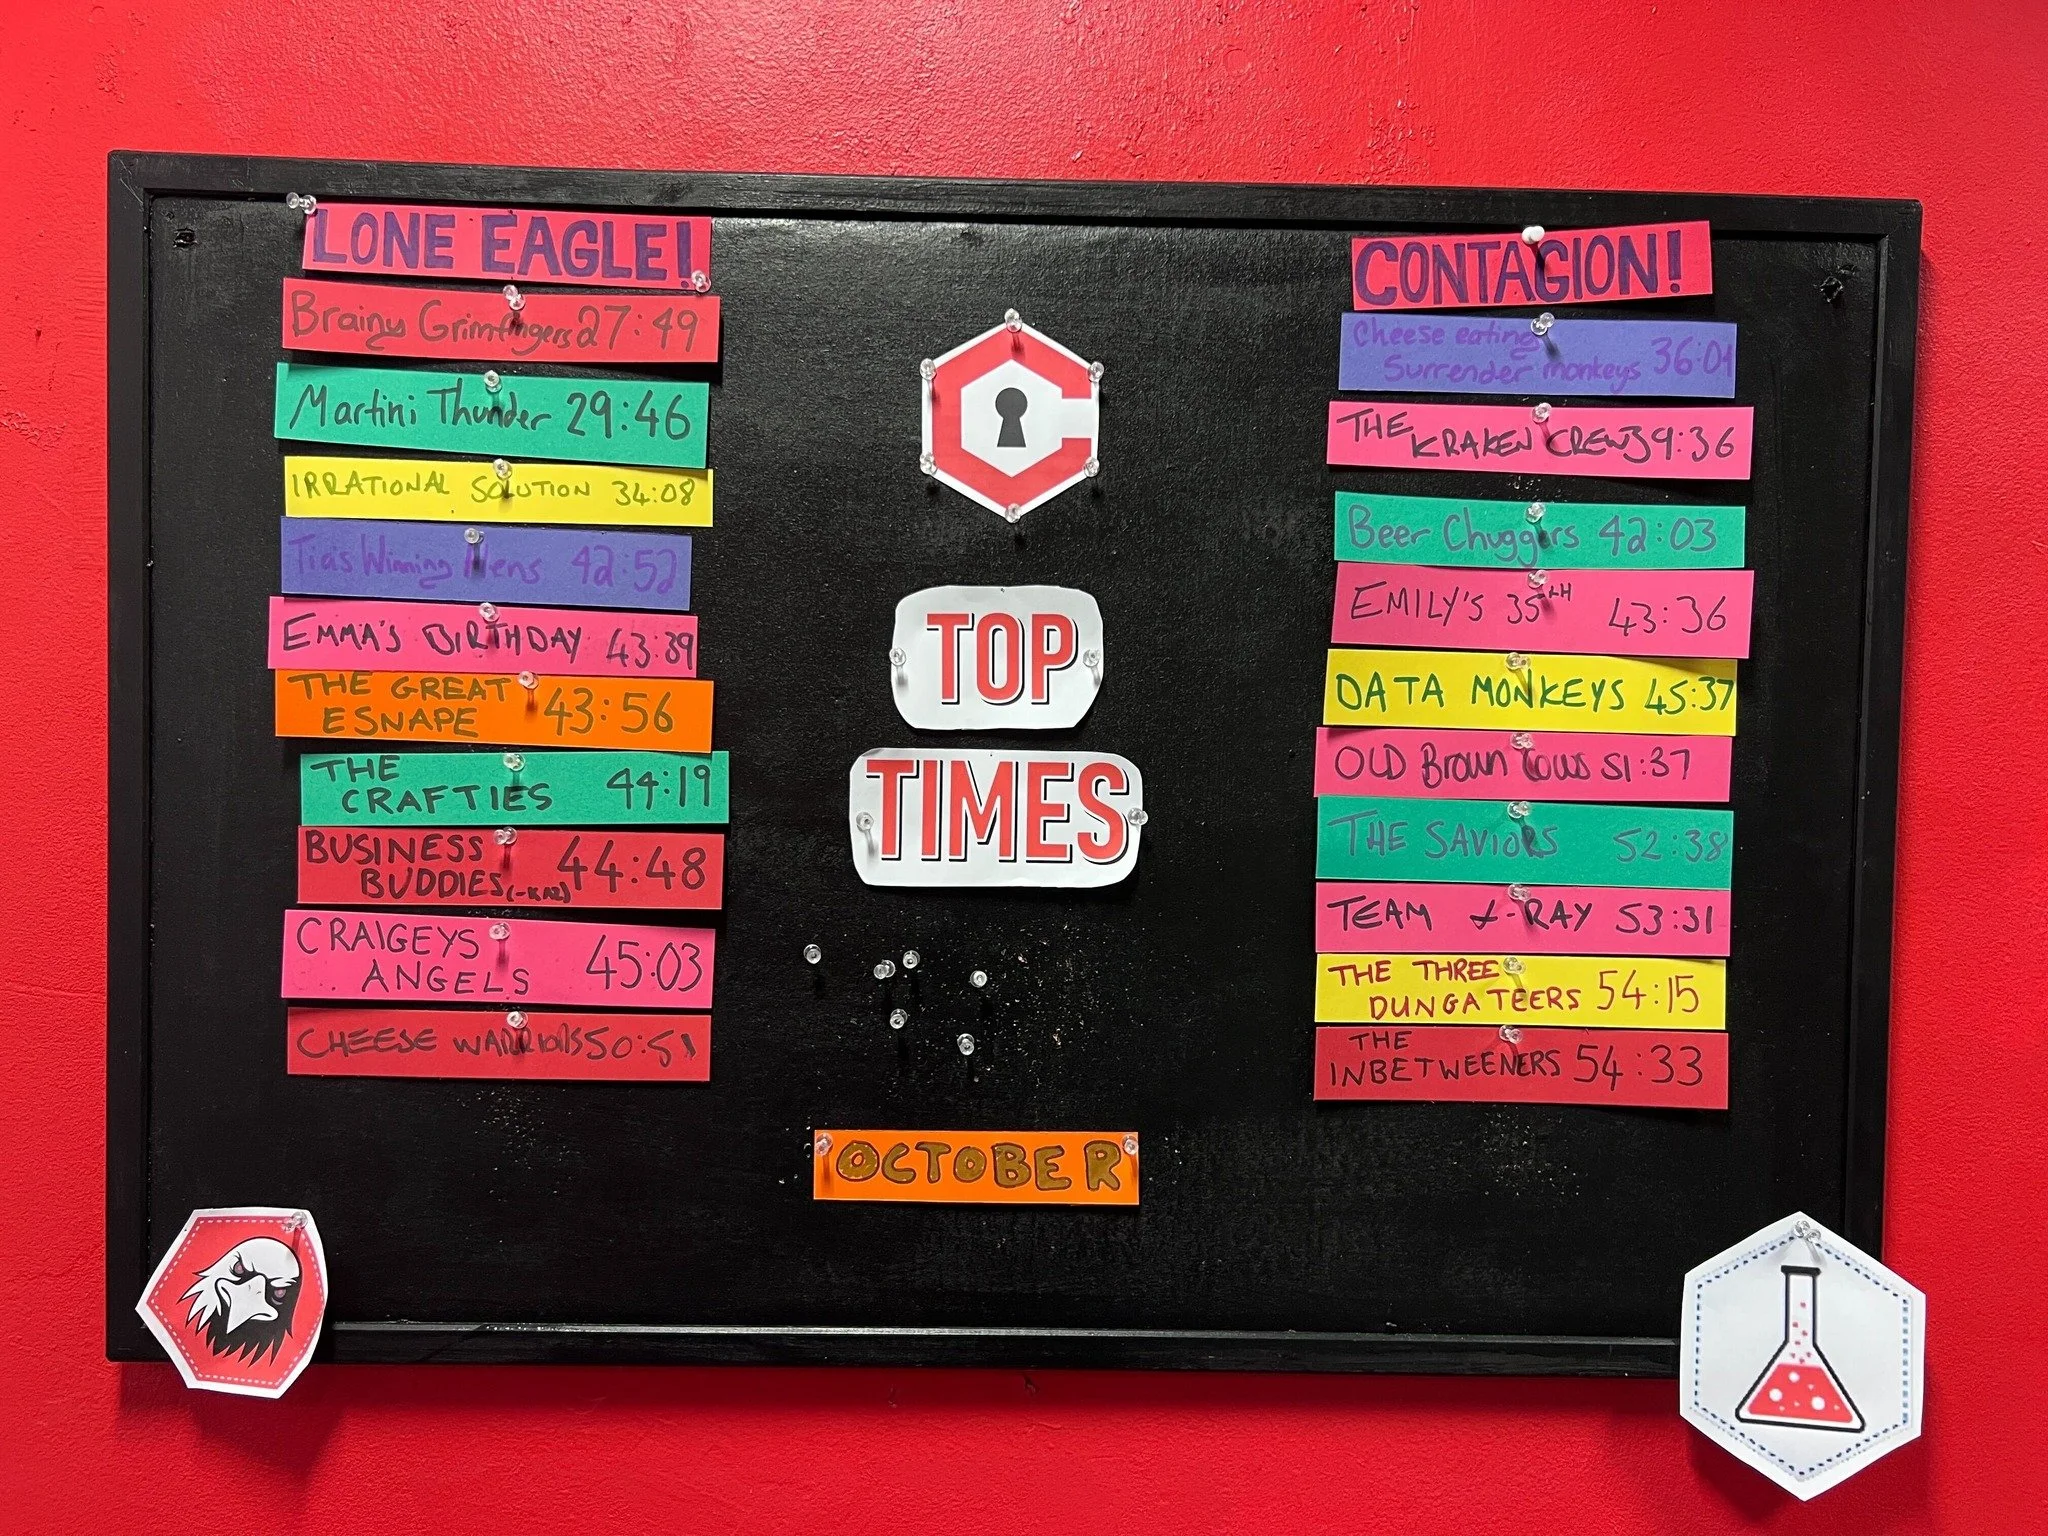 LONE EAGLE!
Brainy Grimfingers 27:49
Martini Thunder 29:46
IRRATIONAL SOLUTION 34:08
Tia's Winning Hens 42:52
EMMA'S BIRTHDAY 43:39
THE GREAT
ESNAPE 43:56
THE
CRAFTIES 44:19
BUSINESS
BUDDIES 44:48
CRAIGEYS
ANGELS 45:03
CHEESE WARRIORS 50:51
TOP
TIMES
OCTOBER
CONTAGION!
Cheese eating
Surrender monkeys 36:01
THE
KRAKEN CREW 39:36
Beer Chuggers 42:03
EMILY'S 35TH 43:36
DATA MONKEYS 45:37
OLD Brown Cows 51:37
THE SAVIORS 52:38
TEAM X-RAY 53:31
THE THREE
DUNGATEERS 54:15
THE
INBETWEENERS 54:33